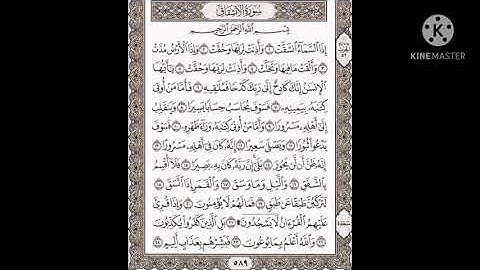 سُورَةُ الانشِقَاقِ
بِسْمِ اللَّهِ الرَّحْمَٰنِ الرَّحِيمِ
إِذَا السَّمَاءُ انشَقَّتْ ١ وَأَذِنَتْ لِرَبِّهَا وَحُقَّتْ ٢ وَإِذَا الْأَرْضُ مُدَّتْ
٣ وَأَلْقَتْ مَا فِيهَا وَتَخَلَّتْ ٤ وَأَذِنَتْ لِرَبِّهَا وَحُقَّتْ ٥ يَا أَيُّهَا
الْإِنسَانُ إِنَّكَ كَادِحٌ إِلَىٰ رَبِّكَ كَدْحًا فَمُلَاقِيهِ ٦ فَأَمَّا مَنْ أُوتِيَ
كِتَابَهُ بِيَمِينِهِ ٧ فَسَوْفَ يُحَاسَبُ حِسَابًا يَسِيرًا ٨ وَيَنقَلِبُ
إِلَىٰ أَهْلِهِ مَسْرُورًا ٩ وَأَمَّا مَنْ أُوتِيَ كِتَابَهُ وَرَاءَ ظَهْرِهِ ١٠ فَسَوْفَ
يَدْعُو ثُبُورًا ١١ وَيَصْلَىٰ سَعِيرًا ١٢ إِنَّهُ كَانَ فِي أَهْلِهِ مَسْرُورًا ١٣
إِنَّهُ ظَنَّ أَن لَّن يَحُورَ ١٤ بَلَىٰ إِنَّ رَبَّهُ كَانَ بِهِ بَصِيرًا ١٥ فَلَا أُقْسِمُ
بِالشَّفَقِ ١٦ وَاللَّيْلِ وَمَا وَسَقَ ١٧ وَالْقَمَرِ إِذَا اتَّسَقَ ١٨
لَتَرْكَبُنَّ طَبَقًا عَن طَبَقٍ ١٩ فَمَا لَهُمْ لَا يُؤْمِنُونَ ٢٠ وَإِذَا قُرِئَ
عَلَيْهِمُ الْقُرْآنُ لَا يَسْجُدُونَ ۩ ٢١ بَلِ الَّذِينَ كَفَرُوا يُكَذِّبُونَ
٢٢ وَاللَّهُ أَعْلَمُ بِمَا يُوعُونَ ٢٣ فَبَشِّرْهُم بِعَذَابٍ أَلِيمٍ ٢٤
٥٨٩
KINEMASTER